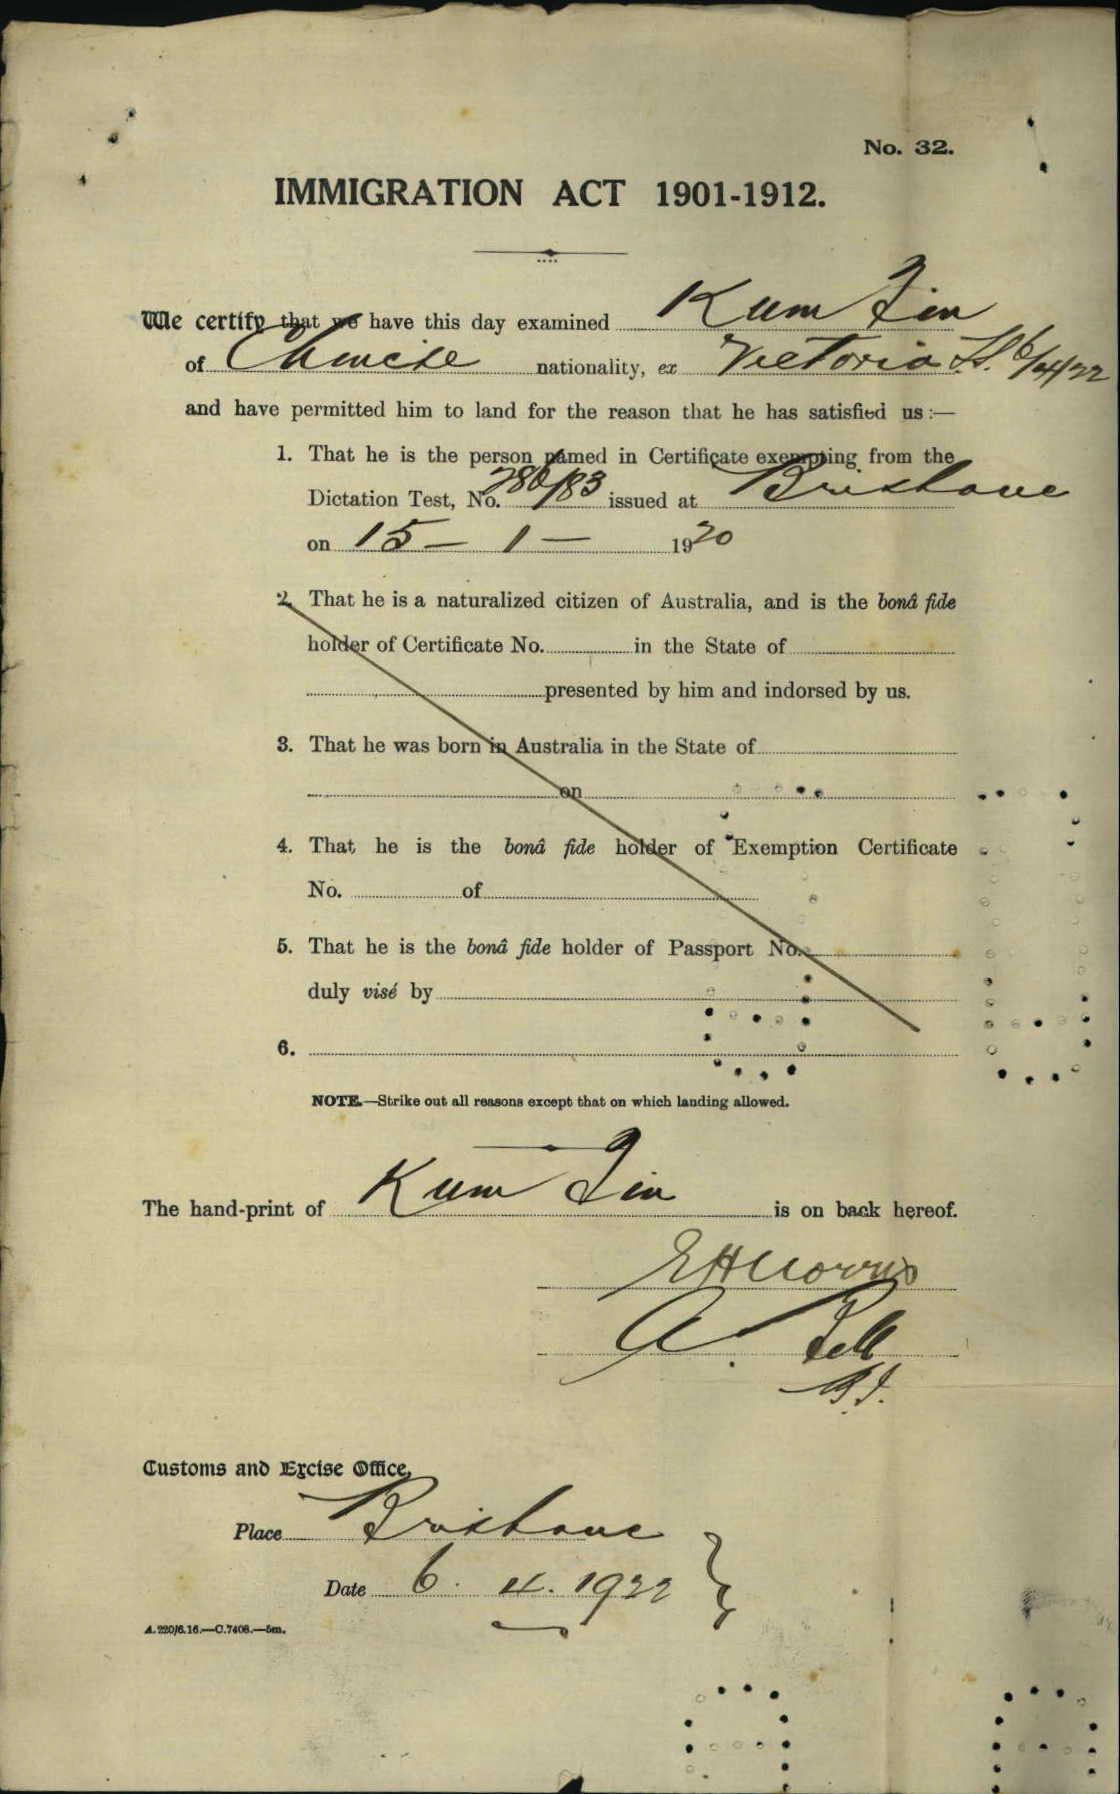 No. 32.
IMMIGRATION ACT 1901-1912.
We certify that we have this day examined Kum Jin
of Chinese nationality, ex Victoria 6/4/22
and have permitted him to land for the reason that he has satisfied us :—
1. That he is the person named in Certificate exempting from the
Dictation Test, No. 286/83 issued at Brisbane
on 15 — 1 — 1920
2. That he is a naturalized citizen of Australia, and is the bonâ fide
holder of Certificate No. in the State of
presented by him and indorsed by us.
3. That he was born in Australia in the State of
on
4. That he is the bonâ fide holder of Exemption Certificate
No. of
5. That he is the bonâ fide holder of Passport No.
duly visé by
6.
NOTE.—Strike out all reasons except that on which landing allowed.
The hand-print of Kum Jin is on back hereof.
EH Morris
A. Bell
Customs and Excise Office,
Place Brisbane
Date 6. 4. 1922
A.220/6.16.—C.7408.—5m.